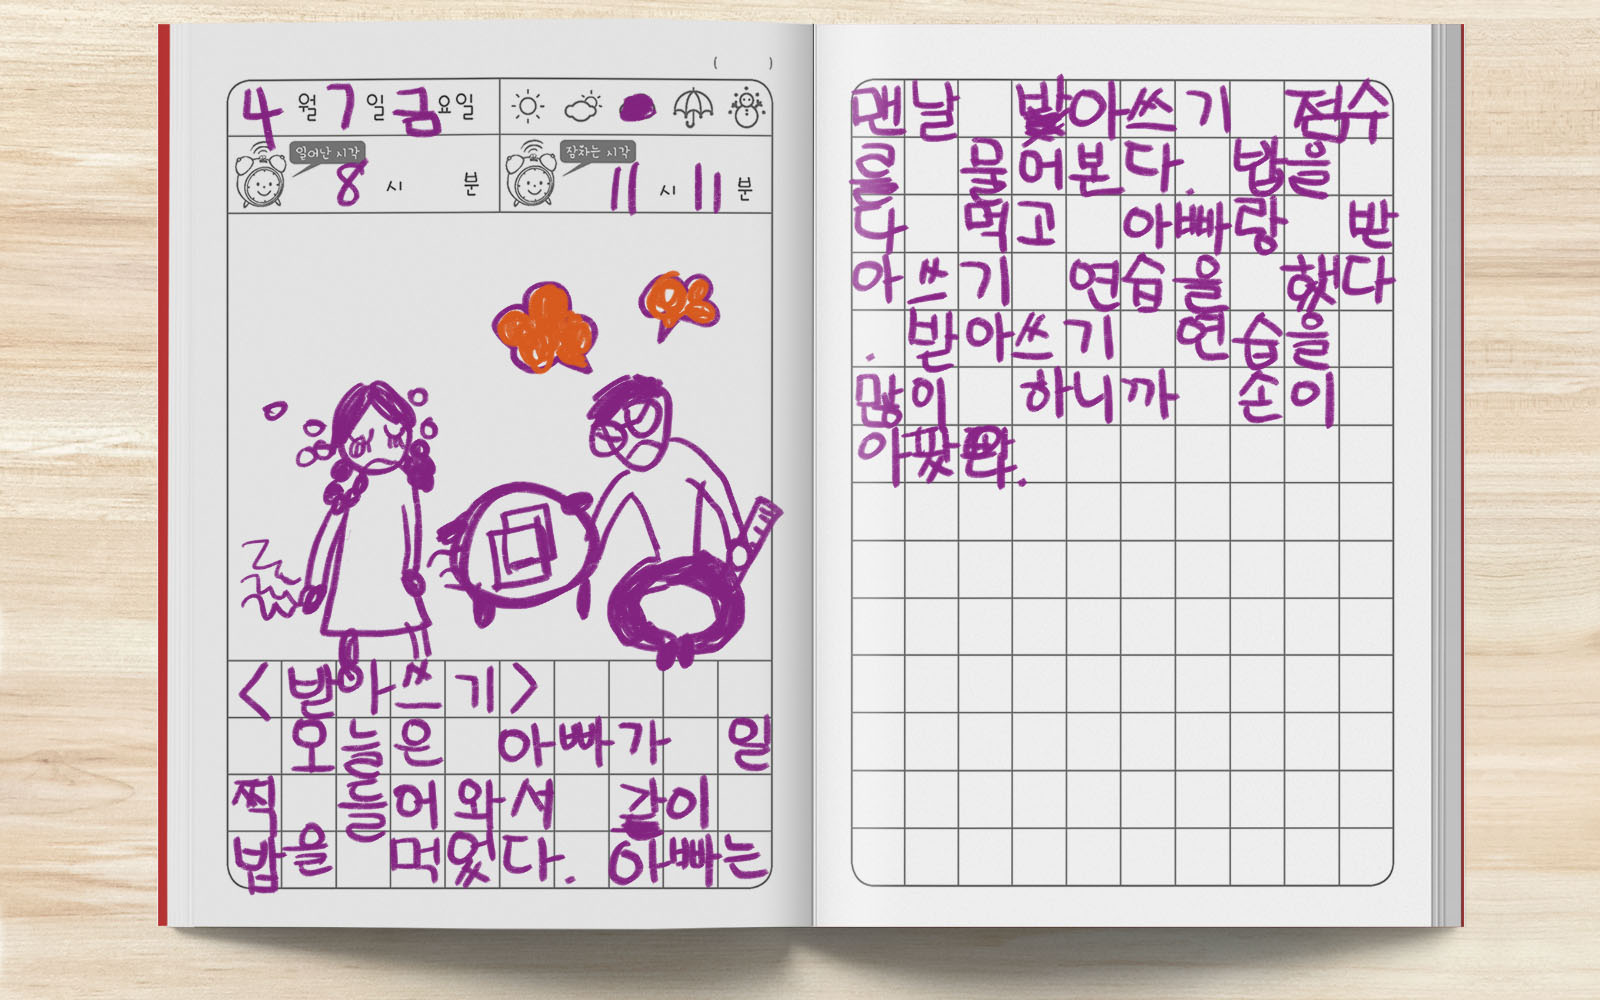 ( )
4월 7일 금요일
일어난 시각 8시 분
잠자는 시각 11시 11분
<받아쓰기>
오늘은 아빠가 일
찍 들어와서 같이
밥을 먹었다. 아빠는
맨날 받아쓰기 점수
를 물어본다. 밥을
다 먹고 아빠랑 반
아쓰기 연습을 했다
. 받아쓰기 연습을
많이 하니까 손이
아팠다.